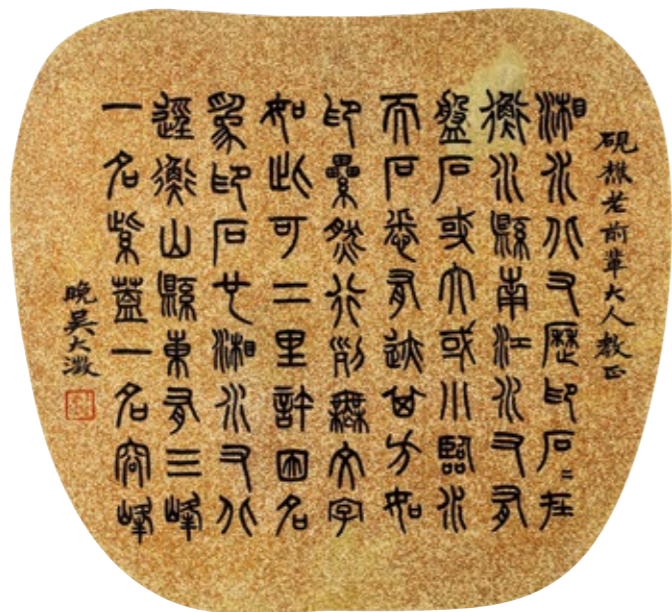 硯樵老前輩大人教正
湘水北又歷印石〻在
衡水縣南江水又有
盤石或大或小臨水
而石悉有迹其方如
印纍然行列無文字
如此可二里許因名
為印石也湘水又北
逕衡山縣東有三峰
一名紫蓋一名容峰
晚吳大澂